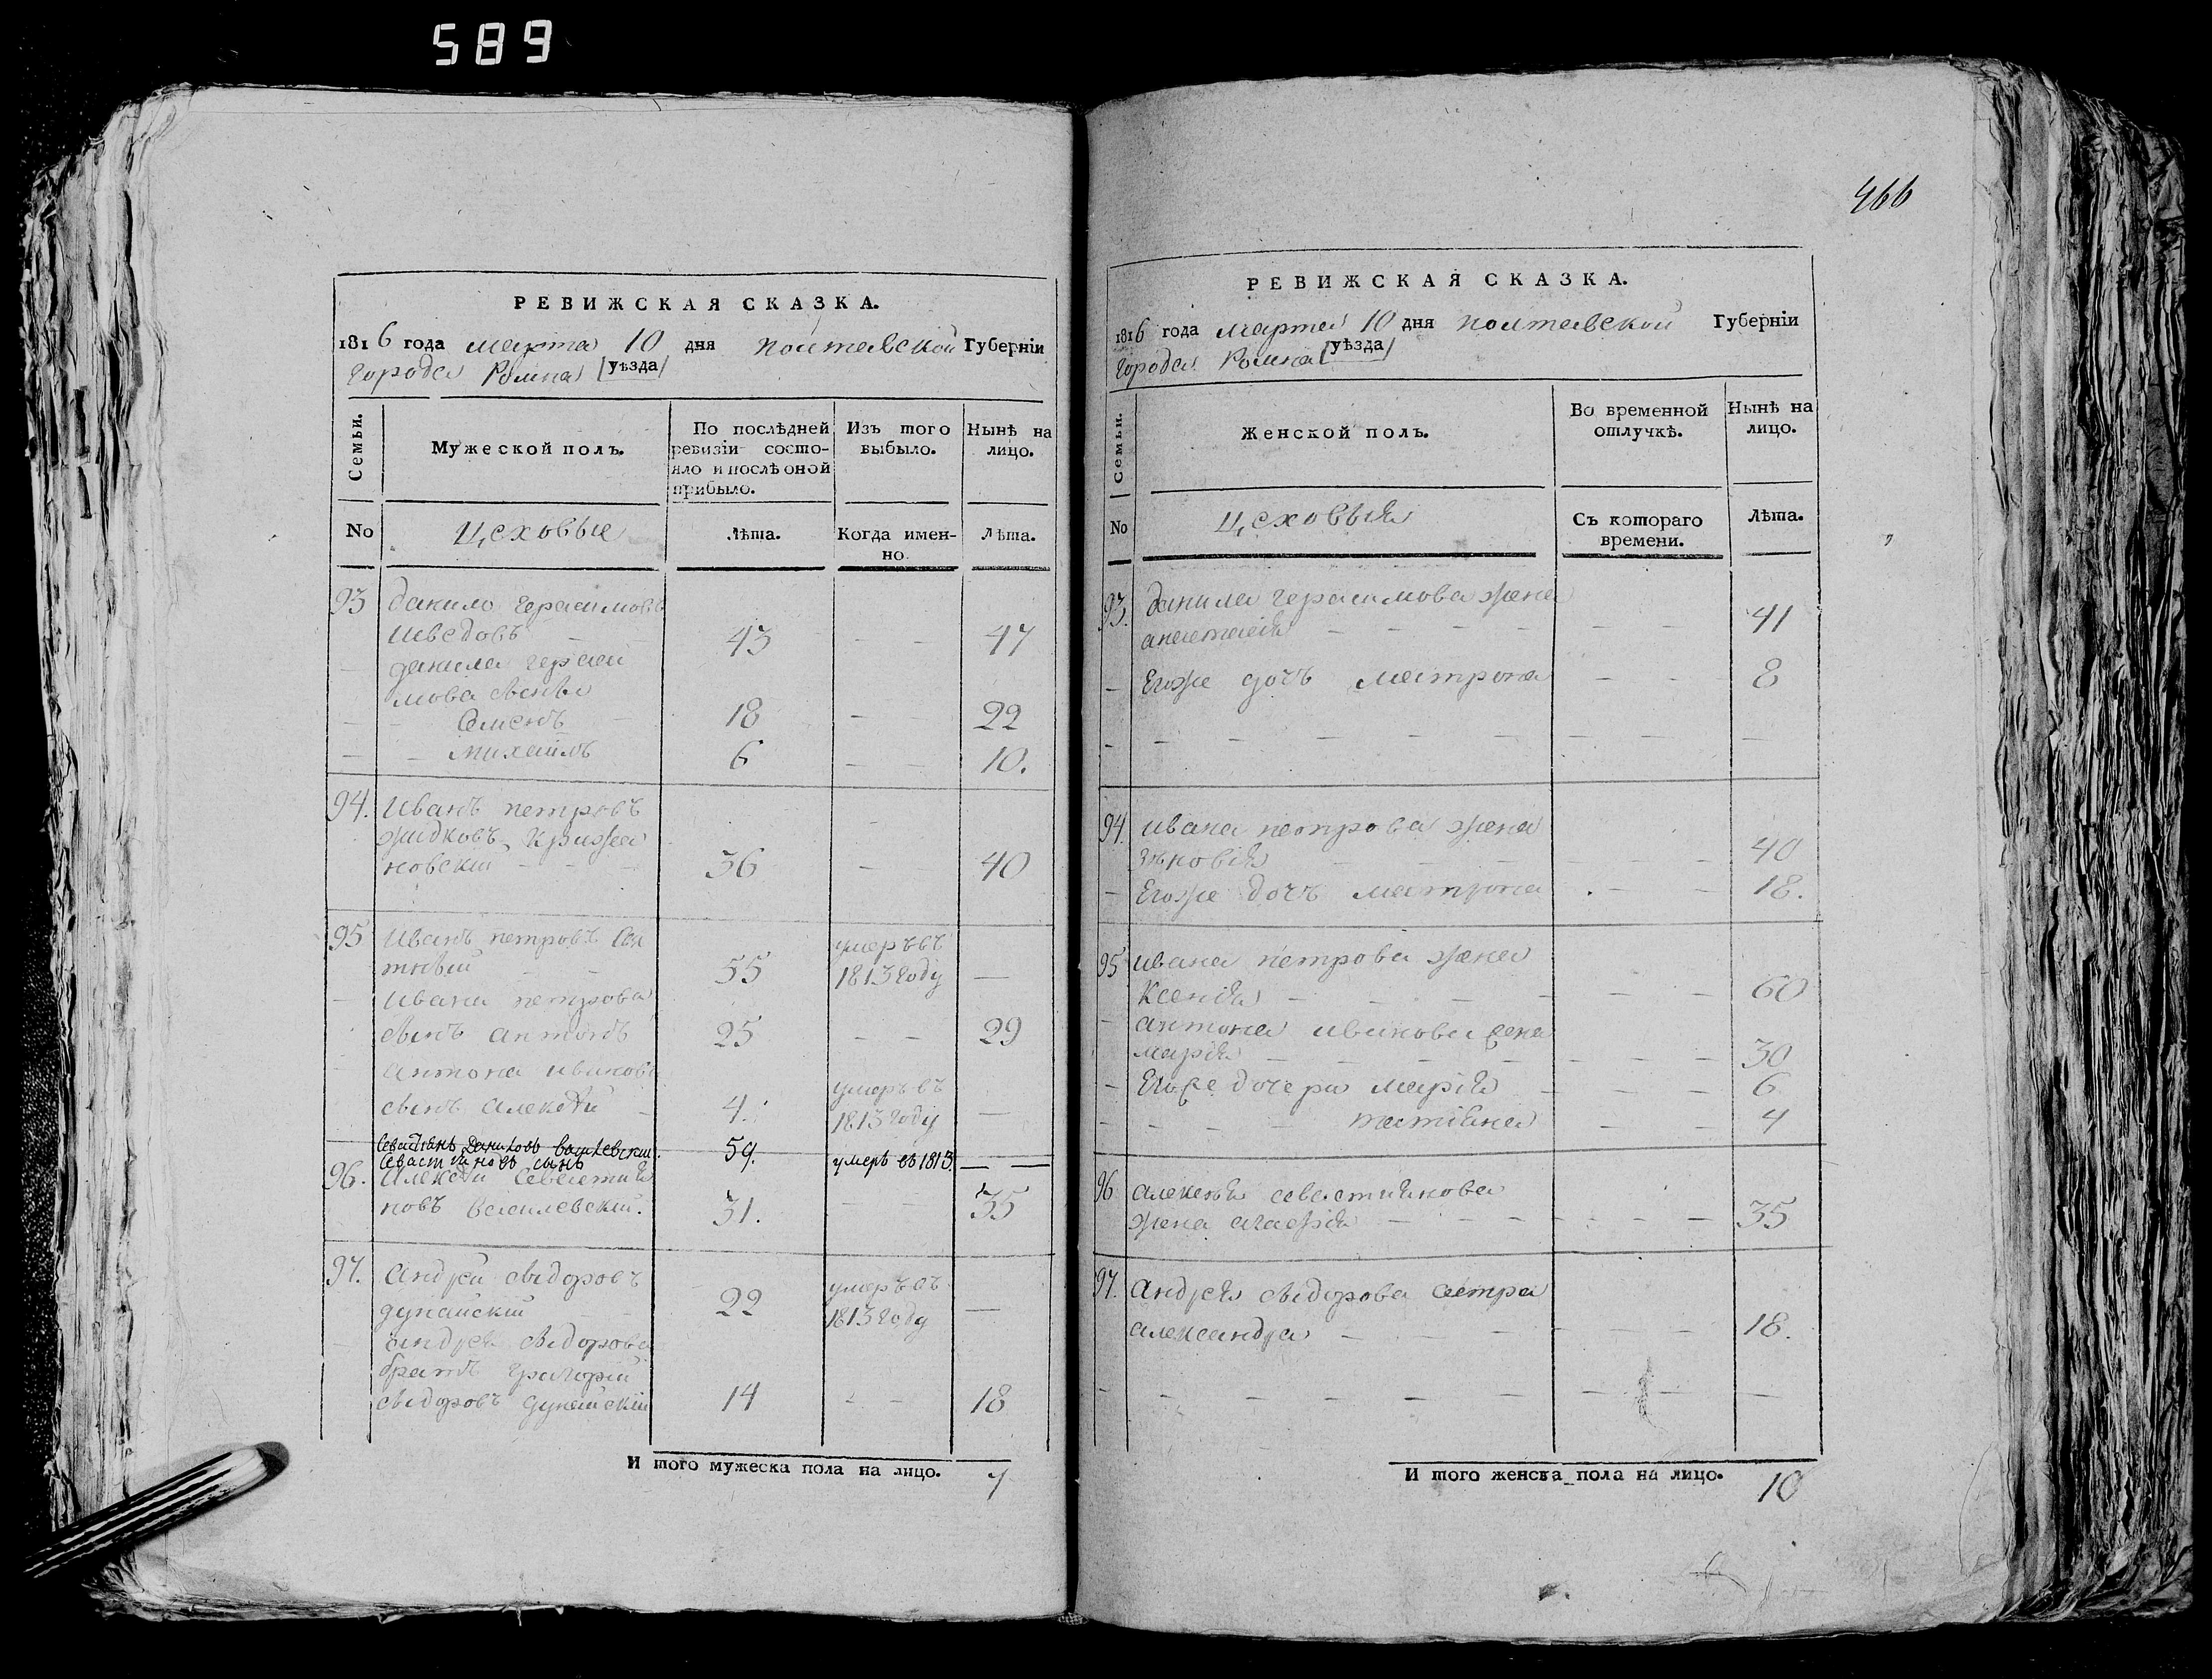 589
РЕВИЖСКАЯ СКАЗКА.
1816 года марта 10 дня полтавской Губернїи
города Ромна уѣзда
Семьи.
Мужеской полъ.
По послѣдней ревизїи состояло и послѣ оной прибыло.
Изъ того выбыло.
Нынѣ на лицо.
No
Цеховые
Лѣта.
Когда именно.
Лѣта.
93 данило герасимовъ
шведовъ – – 43 – – 47
– данила гераси
мова сынъ
– – Семенъ – 18 – 22
– – михайлъ 6 – – 10.
94. Иванъ петровъ
жидковъ, крижа
новскій – – – 36 – 40
95 Иванъ петровъ
умеръ въ
55 1813 году –
– Ивана петрова
сынъ антонъ 25 – – 29
– антона иванова
умеръ въ
сынъ алексѣй – 4. 1813 году –
Севастіянъ Даниловъ василевскій. 59. умеръ въ 1813. – –
Севастіяновъ сынъ
96. Алексѣй Севастия
новъ василевскій. 31. – – 35
97. Андрей сидоровъ
умеръ въ
дунайскій – 22 1813 году –
– андрея сидорова
братъ григорій
сидоровъ дунайскій 14 – – 18
И того мужеска пола на лицо. 7
466
РЕВИЖСКАЯ СКАЗКА.
1816 года марта 10 дня полтавской Губернїи
города Ромна уѣзда
Семьи.
Женской полъ.
Во временной отлучкѣ.
Нынѣ на лицо.
No
Цеховыя
Съ котораго времени.
Лѣта.
93. данила герасимова жена
41
– Егоже дочь матрона – – 8
– – – – – – – – –
94. ивана петрова жена
зѣновія – – – – – – – 40
– Егоже дочь матрона – – 18.
95 ивана петрова жена
Ксенія – – – – – – 60
– антона иванова жена
марія – – – – – – – 30
– Егоже дочери марія – – – 6
– – – – татіяна – – 4
96 алексѣя севастиянова
жена агафія – – – – – – – 35
97. Андрея сидорова сестра
александра – – – – – – 18.
– – – – – – – – –
И того женска пола на лицо. 10